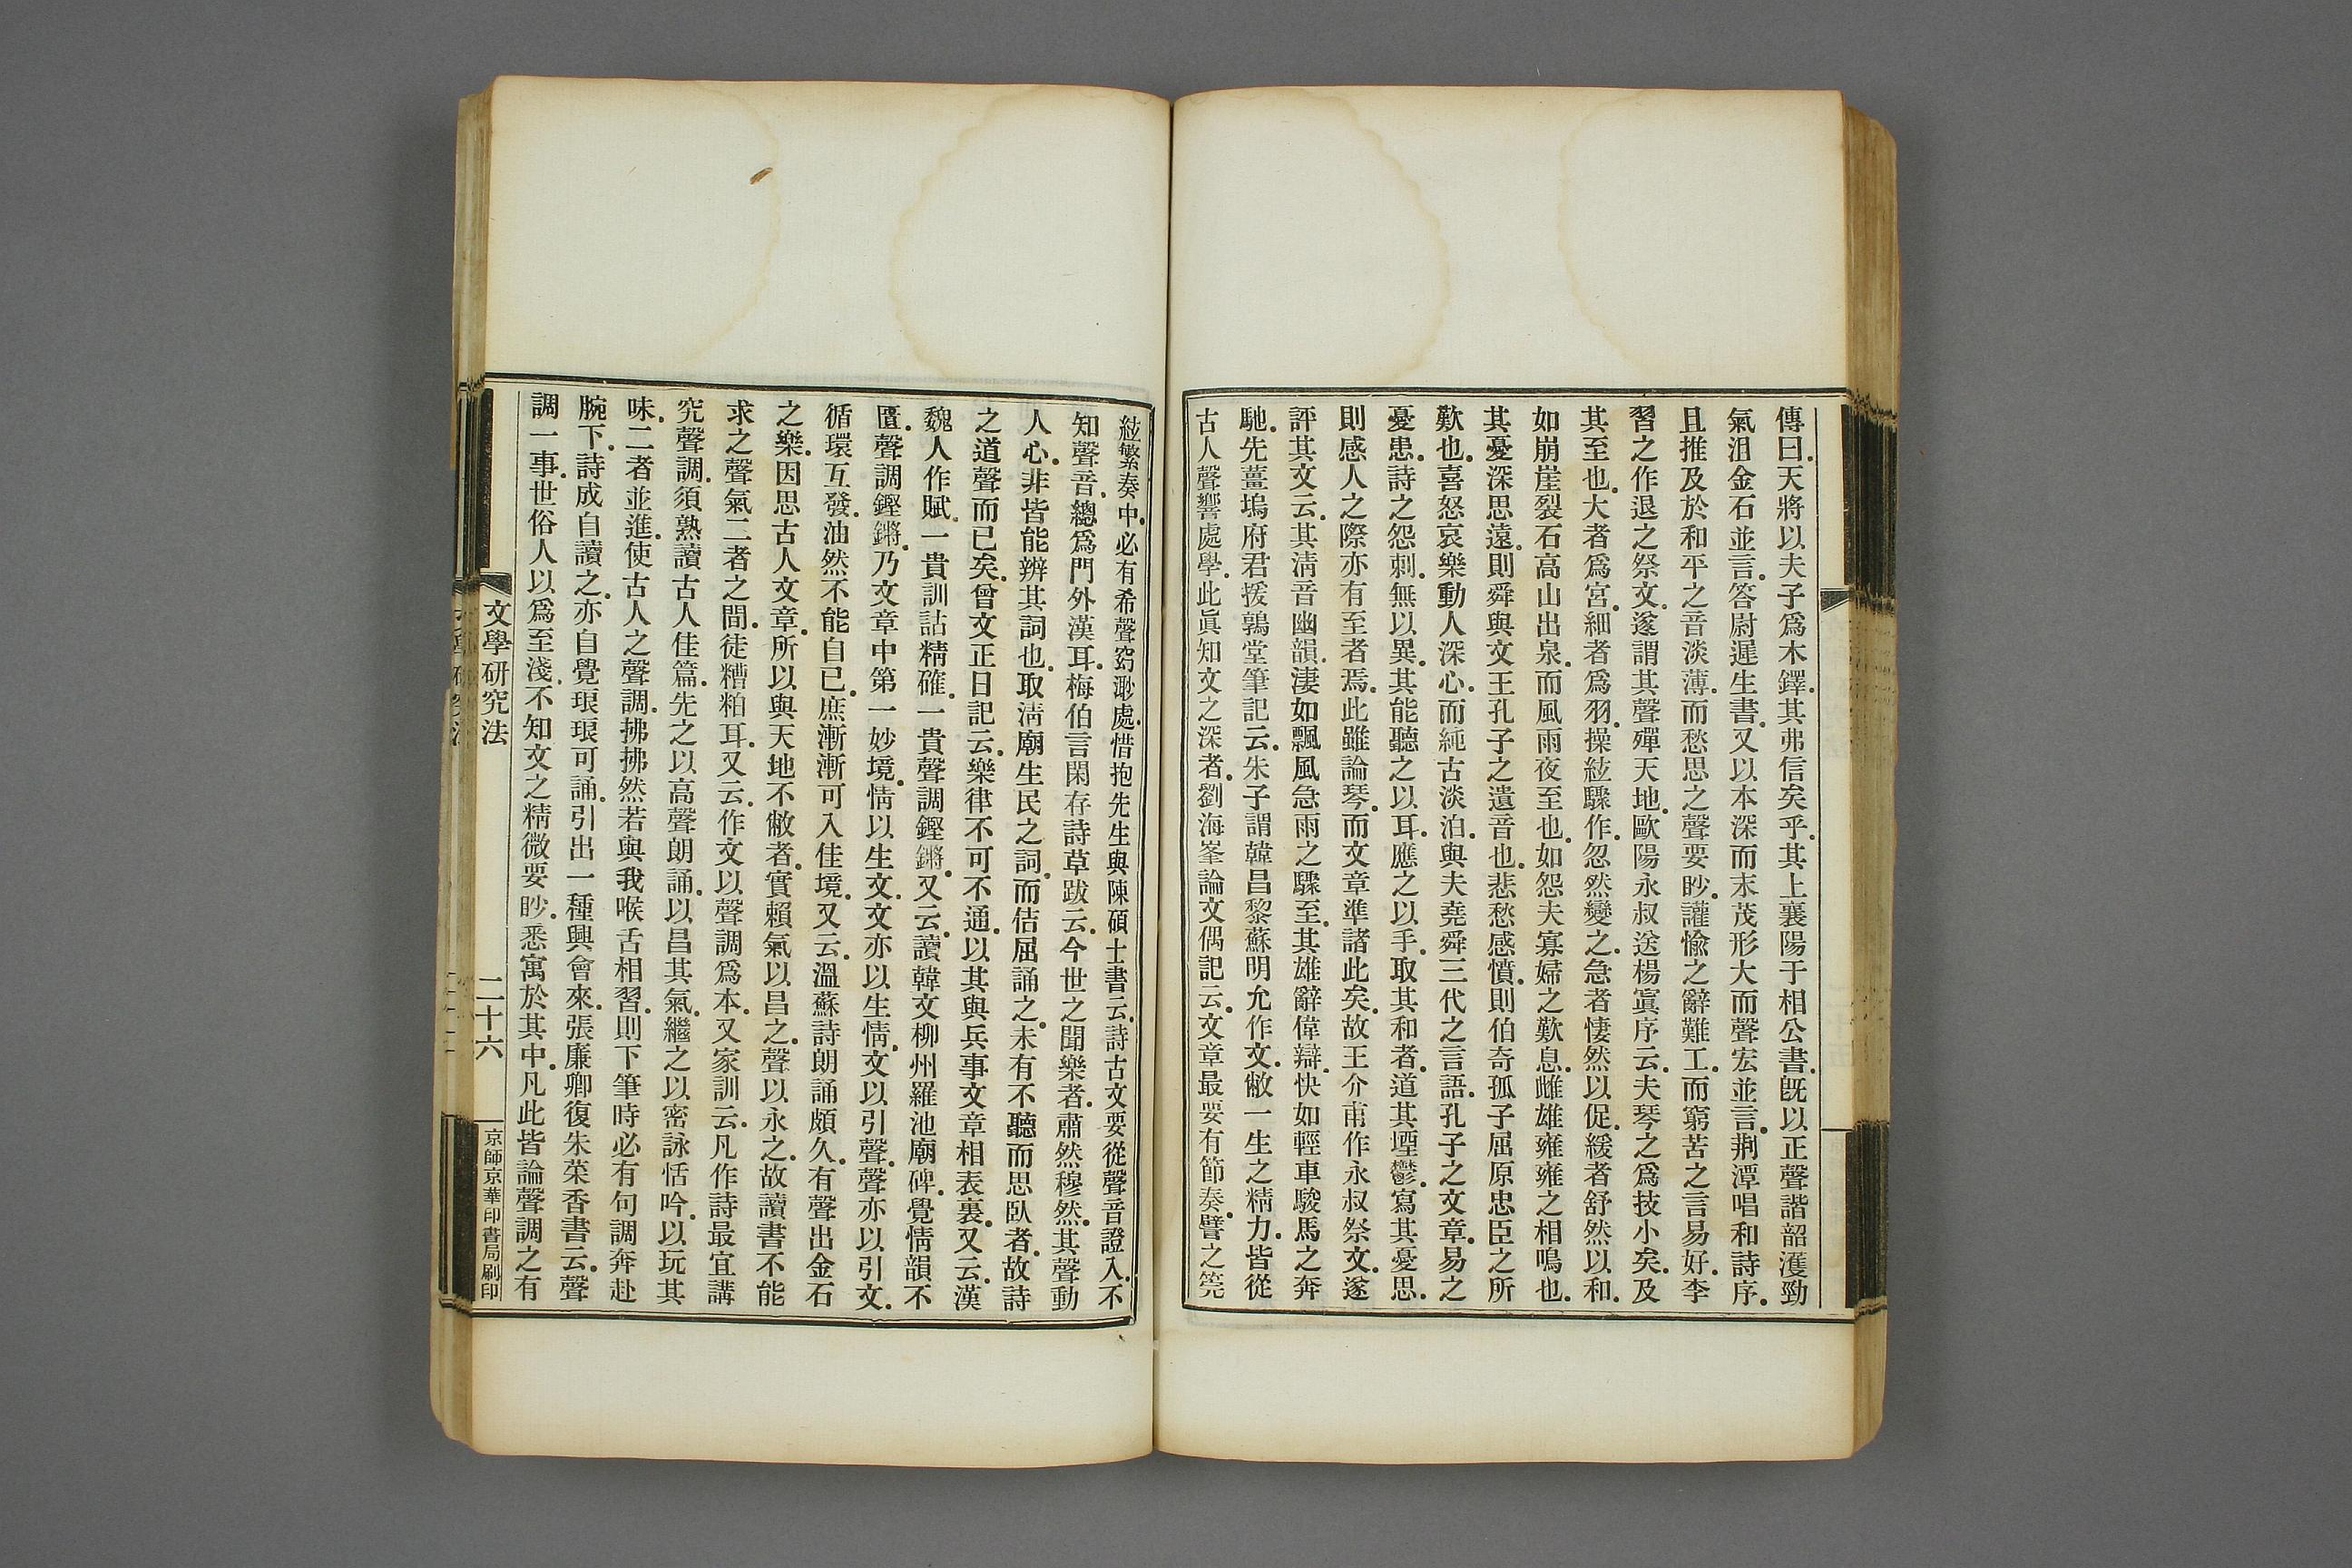 傳曰天將以夫子爲木鐸其弗信矣乎其上襄陽于相公書旣以正聲諧韶濩勁
氣沮金石並言答尉遲生書又以本深而末茂形大而聲宏並言荆潭唱和詩序
且推及於和平之音淡薄而愁思之聲要眇讙愉之辭難工而窮苦之言易好李
習之作退之祭文遂謂其聲殫天地歐陽永叔送楊寘序云夫琴之爲技小矣及
其至也大者爲宮細者爲羽操絃驟作忽然變之急者悽然以促緩者舒然以和
如崩崖裂石高山出泉而風雨夜至也如怨夫寡婦之歎息雌雄雍雍之相鳴也
其憂深思遠則舜與文王孔子之遺音也悲愁感憤則伯奇孤子屈原忠臣之所
歎也喜怒哀樂動人深心而純古淡泊與夫堯舜三代之言語孔子之文章易之
憂患詩之怨刺無以異其能聽之以耳應之以手取其和者道其堙鬱寫其憂思
則感人之際亦有至者焉此雖論琴而文章準諸此矣故王介甫作永叔祭文遂
評其文云其淸音幽韻淒如飄風急雨之驟至其雄辭偉辯快如輕車駿馬之奔
馳先薑塢府君援鶉堂筆記云朱子謂韓昌黎蘇明允作文敝一生之精力皆從
古人聲響處學此眞知文之深者劉海峯論文偶記云文章最要有節奏譬之筦
絃繁奏中必有希聲窈渺處惜抱先生與陳碩士書云詩古文要從聲音證入不
知聲音總爲門外漢耳梅伯言閑存詩草跋云今世之聞樂者肅然穆然其聲動
人心非皆能辨其詞也取淸廟生民之詞而佶屈誦之未有不聽而思臥者故詩
之道聲而已矣曾文正日記云樂律不可不通以其與兵事文章相表裏又云漢
魏人作賦一貴訓詁精確一貴聲調鏗鏘又云讀韓文柳州羅池廟碑覺情韻不
匱聲調鏗鏘乃文章中第一妙境情以生文文亦以生情文以引聲聲亦以引文
循環互發油然不能自已庶漸漸可入佳境又云溫蘇詩朗誦頗久有聲出金石
之樂因思古人文章所以與天地不敝者實賴氣以昌之聲以永之故讀書不能
求之聲氣二者之間徒糟粕耳又云作文以聲調爲本又家訓云凡作詩最宜講
究聲調須熟讀古人佳篇先之以高聲朗誦以昌其氣繼之以密詠恬吟以玩其
味二者並進使古人之聲調拂拂然若與我喉舌相習則下筆時必有句調奔赴
腕下詩成自讀之亦自覺琅琅可誦引出一種興會來張廉卿復朱萊香書云聲
調一事世俗人以爲至淺不知文之精微要眇悉寓於其中凡此皆論聲調之有
文學研究法
二十六
京師京華印書局刷印